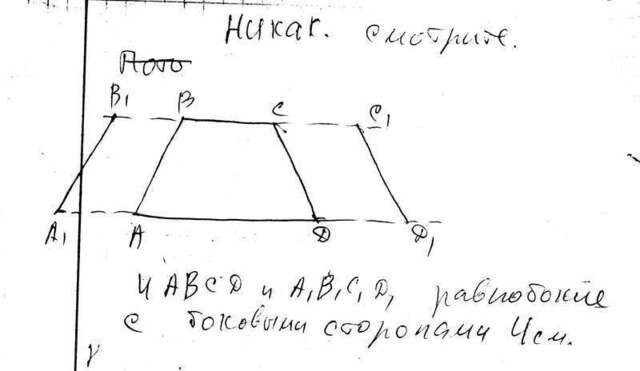 Никак. смотрите.
Пото
B₁ B C C₁
A₁ A D D₁
И ABCD и A₁B₁C₁D₁ равнобокие
с боковыми сторонами 4см.
γ